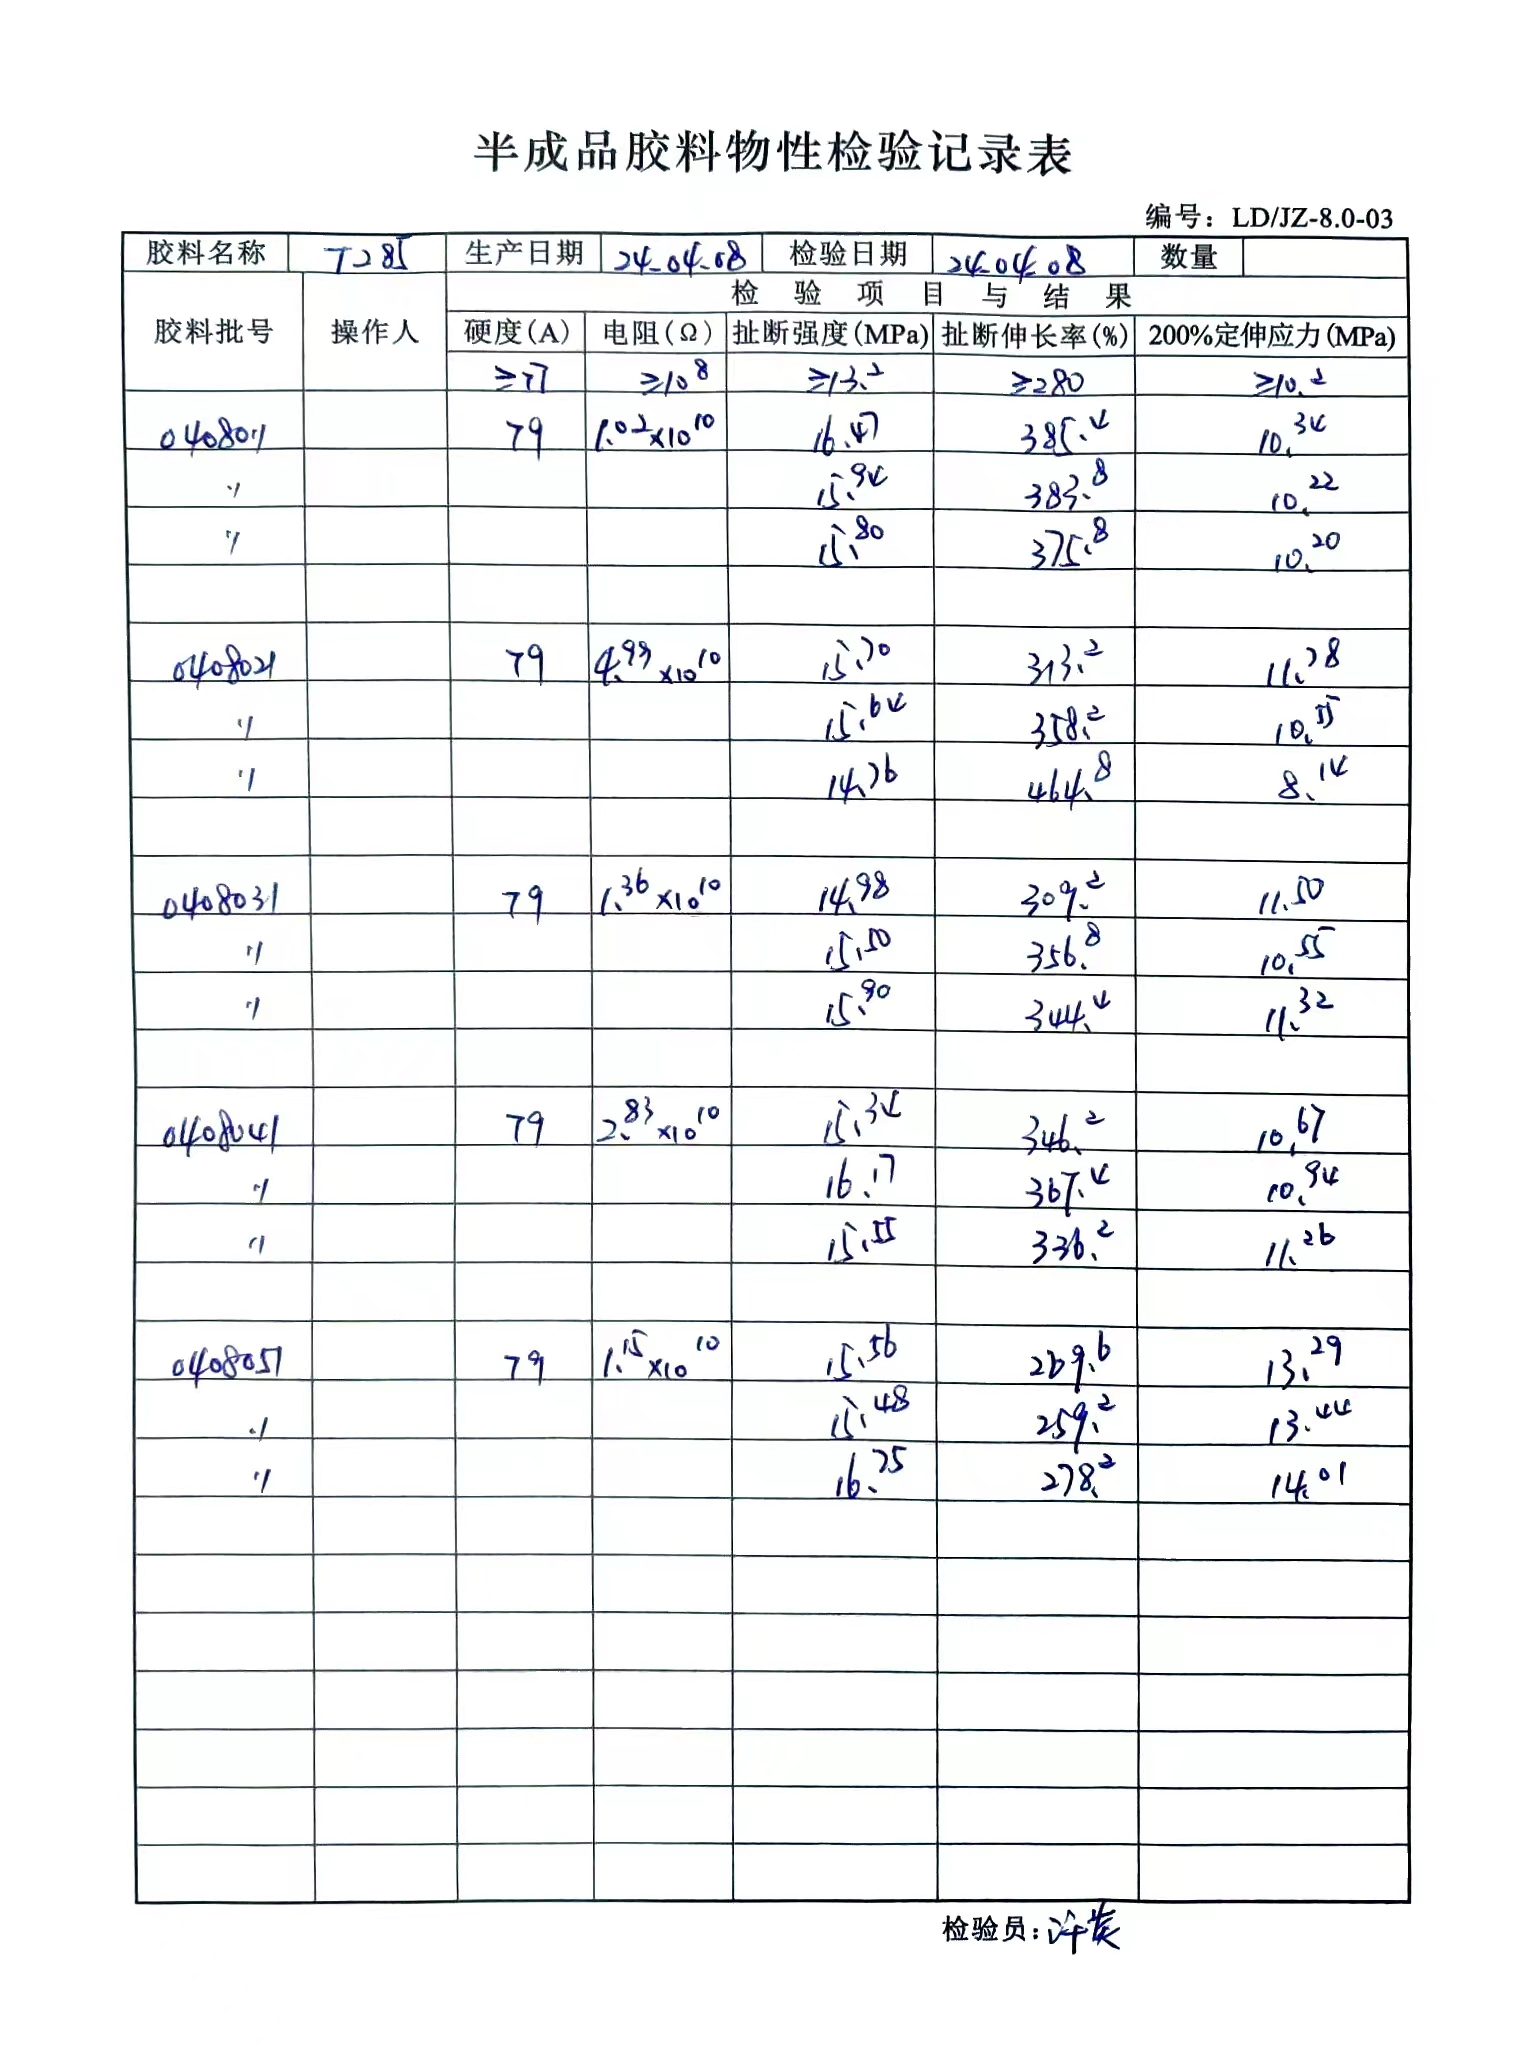 半成品胶料物性检验记录表
编号：LD/JZ-8.0-03
胶料名称 T285 生产日期 24-04-08 检验日期 24-04-08 数量
检 验 项 目 与 结 果
胶料批号 操作人 硬度(A) 电阻(Ω) 扯断强度(MPa) 扯断伸长率(%) 200%定伸应力(MPa)
≥77 ≥10⁸ ≥13.2 ≥280 ≥10.2
0408011 79 1.02×10¹⁰ 16.47 385.4 10.34
〃 15.94 383.8 10.22
〃 15.80 375.8 10.20
0408021 79 4.99×10¹⁰ 15.70 313.2 11.78
〃 15.64 358.2 10.55
〃 14.76 464.8 8.14
0408031 79 1.36×10¹⁰ 14.98 309.2 11.50
〃 15.50 356.8 10.55
〃 15.90 344.4 11.32
0408041 79 2.83×10¹⁰ 15.34 346.2 10.67
〃 16.17 367.4 10.94
〃 15.55 336.2 11.26
0408051 79 1.15×10¹⁰ 15.56 269.6 13.29
〃 15.48 259.2 13.44
〃 16.75 278.2 14.01
检验员：许